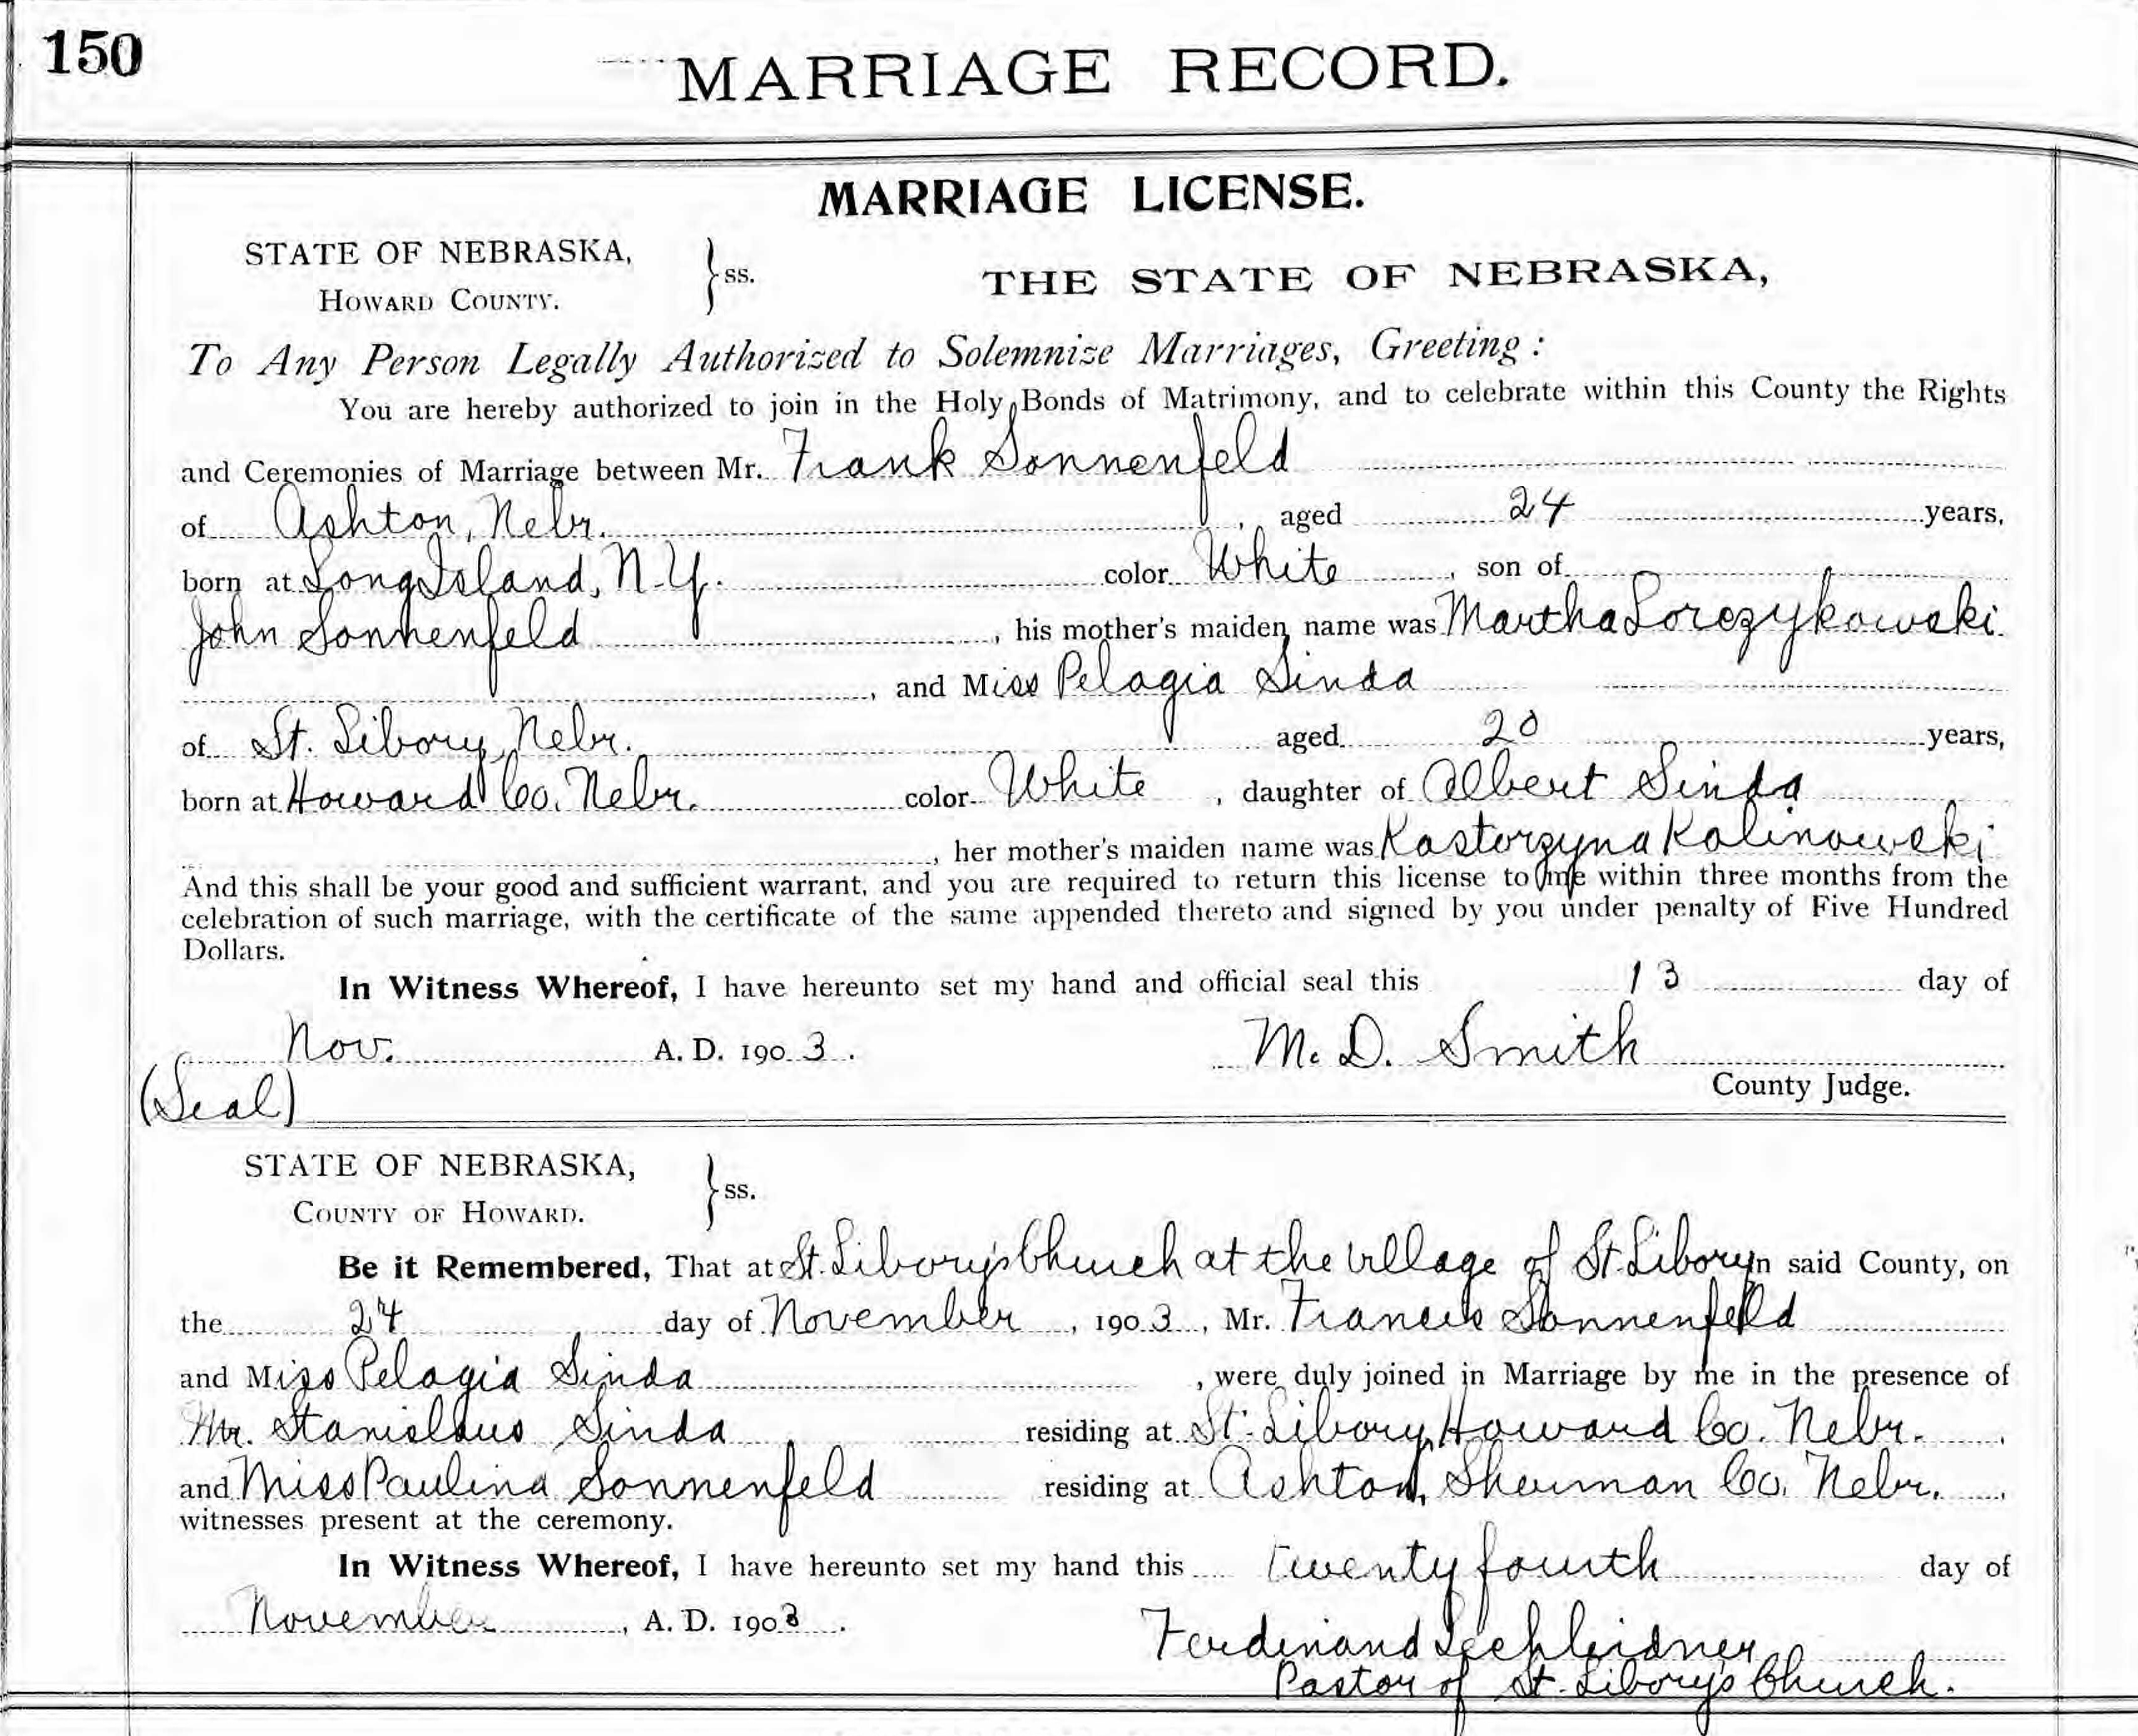 150
MARRIAGE RECORD.
MARRIAGE LICENSE.
STATE OF NEBRASKA,
HOWARD COUNTY.
}ss.
THE STATE OF NEBRASKA,
To Any Person Legally Authorized to Solemnize Marriages, Greeting:
You are hereby authorized to join in the Holy Bonds of Matrimony, and to celebrate within this County the Rights
and Ceremonies of Marriage between Mr. Frank Sonnenfeld
of Ashton, Nebr., aged 24 years,
born at Long Island, N.Y. color White, son of
John Sonnenfeld, his mother's maiden name was Martha Lorczykowski
, and Miss Pelagia Sinda
of St. Libory, Nebr. aged 20 years,
born at Howard Co. Nebr. color White, daughter of Albert Sinda
, her mother's maiden name was Kastorzyna Kalinowski
And this shall be your good and sufficient warrant, and you are required to return this license to me within three months from the
celebration of such marriage, with the certificate of the same appended thereto and signed by you under penalty of Five Hundred
Dollars.
In Witness Whereof, I have hereunto set my hand and official seal this 13 day of
Nov. A. D. 1903. M. D. Smith
(Seal) County Judge.
STATE OF NEBRASKA,
COUNTY OF HOWARD.
}ss.
Be it Remembered, That at St. Libory's Church at the village of St. Libory in said County, on
the 24 day of November, 1903, Mr. Francis Sonnenfeld
and Miss Pelagia Sinda, were duly joined in Marriage by me in the presence of
Mr. Stanislaus Sinda residing at St. Libory, Howard Co. Nebr.
and Miss Paulina Sonnenfeld residing at Ashton, Sherman Co. Nebr.
witnesses present at the ceremony.
In Witness Whereof, I have hereunto set my hand this twenty fourth day of
November, A. D. 1903.
Ferdinand
Pastor of St. Libory's Church.